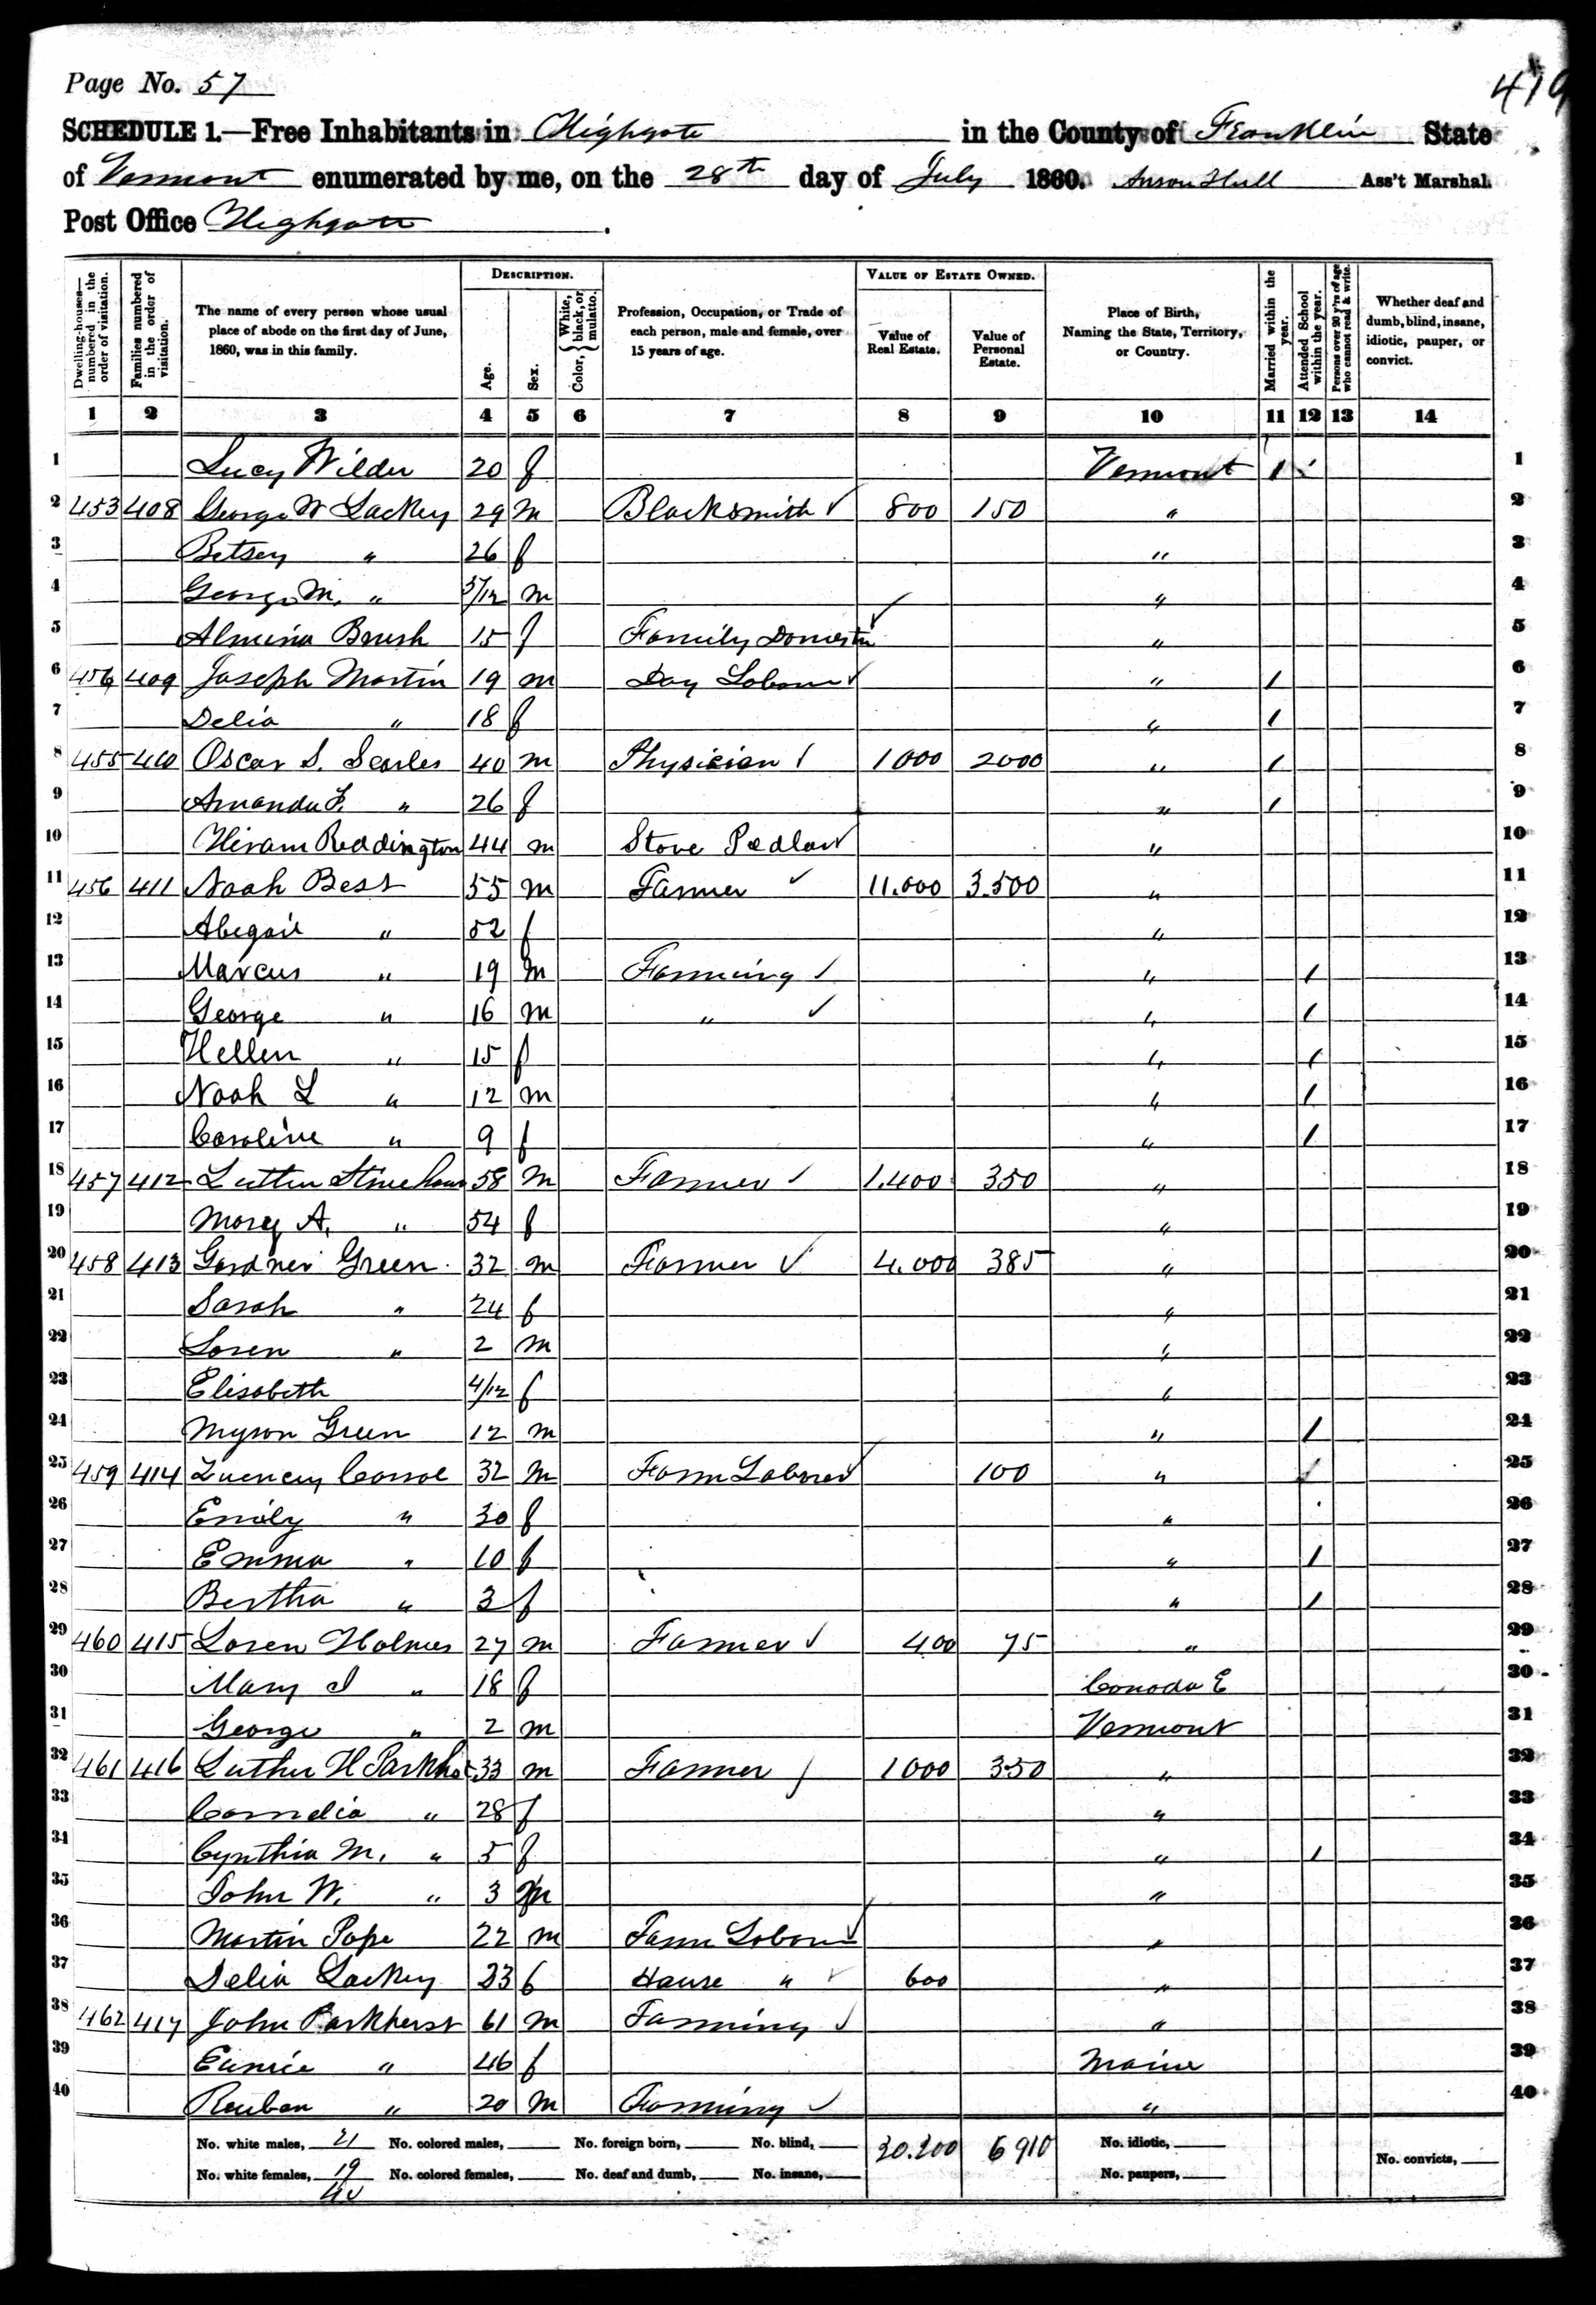 419
Page No. 57
SCHEDULE 1.—Free Inhabitants in Highgate in the County of Franklin State
of Vermont enumerated by me, on the 28th day of July 1860. Anson Hull Ass't Marshal.
Post Office Highgate.
Dwelling-houses—numbered in the order of visitation. Families numbered in the order of visitation. The name of every person whose usual place of abode on the first day of June, 1860, was in this family. Description. Age. Sex. Color, White, black, or mulatto. Profession, Occupation, or Trade of each person, male and female, over 15 years of age. Value of Estate Owned. Value of Real Estate. Value of Personal Estate. Place of Birth, Naming the State, Territory, or Country. Married within the year. Attended School within the year. Persons over 20 y'rs of age who cannot read & write. Whether deaf and dumb, blind, insane, idiotic, pauper, or convict.
1 2 3 4 5 6 7 8 9 10 11 12 13 14
1 Lucy Wilder 20 f Vermont 1 1
2 453 408 George W Lackey 29 m Blacksmith ✓ 800 150 " 2
3 Betsey " 26 f " 3
4 George M. " 5/12 m " 4
5 Almina Brush 15 f Family Domestic ✓ " 5
6 454 409 Joseph Martin 19 m Day Laborer ✓ " 1 6
7 Delia " 18 f " 1 7
8 455 410 Oscar S. Searles 40 m Physician ✓ 1000 2000 " 1 8
9 Amanda F. " 26 f " 1 9
10 Hiram Reddington 44 m Stove Pedlar ✓ " 10
11 456 411 Noah Best 55 m Farmer ✓ 11.000 3.500 " 11
12 Abegail " 52 f " 12
13 Marcus " 19 m Farming ✓ " 1 13
14 George " 16 m " ✓ " 1 14
15 Hellen " 15 f " 1 15
16 Noah L " 12 m " 1 16
17 Caroline " 9 f " 1 17
18 457 412 Luther 58 m Farmer ✓ 1.400 350 " 18
19 Mary A. " 54 f " 19
20 458 413 Gardner Green 32 m Farmer ✓ 4.000 385 " 20
21 Sarah " 24 f " 21
22 Loren " 2 m " 22
23 Elisabeth 4/12 f " 23
24 Myron Green 12 m " 1 24
25 459 414 32 m Farm Laborer ✓ 100 " 25
26 Emily " 30 f " 26
27 Emma " 10 f " 1 27
28 Bertha " 3 f " 1 28
29 460 415 Loren Holmes 27 m Farmer ✓ 400 75 " 29
30 Mary J " 18 f Canada E 30
31 George " 2 m Vermont 31
32 461 416 Luther H Parkhst 33 m Farmer ✓ 1000 350 " 32
33 Cornelia " 28 f " 33
34 Cynthia M. " 5 f " 1 34
35 John W. " 3 m " 35
36 Martin Pope 22 m Farm Laborer ✓ " 36
37 Delia Lackey 23 f House " ✓ 600 " 37
38 462 417 John Parkherst 61 m Farming ✓ " 38
39 Eunice " 46 f Maine 39
40 Reuben " 20 m Farming ✓ " 40
No. white males, 21 No. colored males, No. foreign born, No. blind, 20.200 6910 No. idiotic,
No. white females, 19 No. colored females, No. deaf and dumb, No. insane, No. paupers, No. convicts,
40